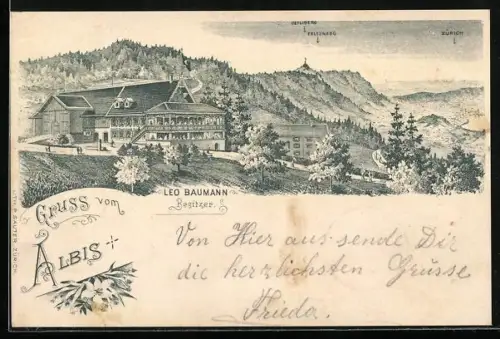 UETLIBERG
FELSENEGG
ZÜRICH
LEO BAUMANN
Besitzer.
GRUSS VOM
ALBIS
Von Hier aus sende Dir
die herzlichsten Grüsse
Frieda.